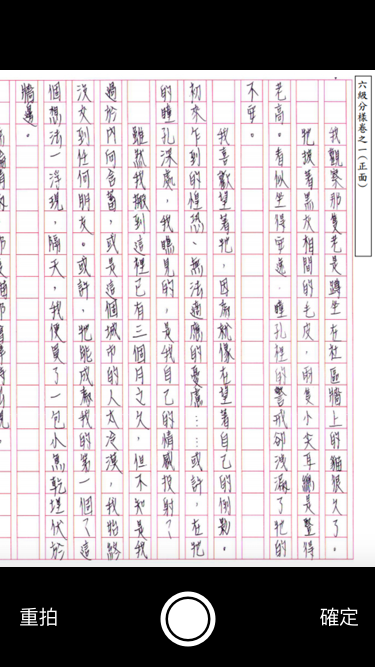 六級分樣卷之一（正面）
我觀察那隻老是蹲坐在社區牆上的貓很久了。
牠披著黑灰相間的毛皮，兩隻小尖耳總是豎得
老高。看似坐得安逸，瞳孔裡的警戒卻洩漏了牠的
不安。
我喜歡望著牠，因為就像在望著自己的倒影。
初來乍到的惶恐、無法適應的憂慮……或許，在牠
的瞳孔深處，我瞧見的，是我自己的情感投射？
雖然我搬到這裡已有三個月之久，但不知是我
過於內向害羞，或是這個城市的人太冷漠，我始終
沒交到任何朋友。或許，牠能成為我的第一個？這
個想法一浮現，隔天，我便買了一包小魚乾埋伏於
牆邊。
重拍
確定